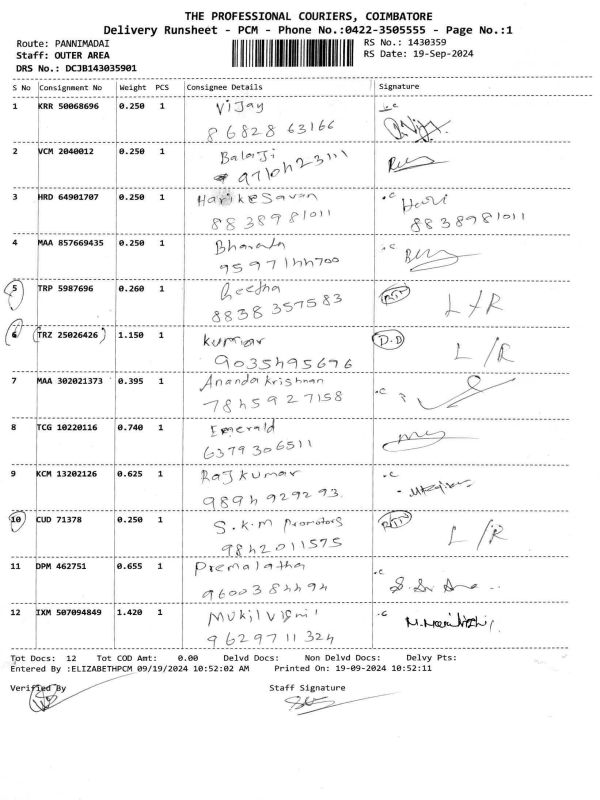 THE PROFESSIONAL COURIERS, COIMBATORE
Delivery Runsheet - PCM - Phone No.:0422-3505555 - Page No.:1
Route: PANNIMADAI
RS No.: 1430359
Staff: OUTER AREA
RS Date: 19-Sep-2024
DRS No.: DCJB143035901
S No Consignment No Weight PCS Consignee Details Signature
1 KRR 50068696 0.250 1 Vijay
86828 63166
2 VCM 2040012 0.250 1 Balaji
9710423111
3 HRD 64901707 0.250 1 Harikesavan Hari
8838981011 8838981011
4 MAA 857669435 0.250 1 Bharath
9597144700
5 TRP 5987696 0.260 1 Geetha L/R
8838 357583
6 TRZ 25026426 1.150 1 Kumar D.D L/R
9035495676
7 MAA 302021373 0.395 1 Ananda Krishnan
7845927158
8 TCG 10220116 0.740 1 Emerald
6379306511
9 KCM 13202126 0.625 1 Rajkumar
9894929293
10 CUD 71378 0.250 1 S.K.M Promotors L/R
9842011575
11 DPM 462751 0.655 1 Premalatha
9600384494
12 IXM 507094849 1.420 1
9629711324
Tot Docs: 12 Tot COD Amt: 0.00 Delvd Docs: Non Delvd Docs: Delvy Pts:
Entered By :ELIZABETHPCM 09/19/2024 10:52:02 AM Printed On: 19-09-2024 10:52:11
Verified By Staff Signature